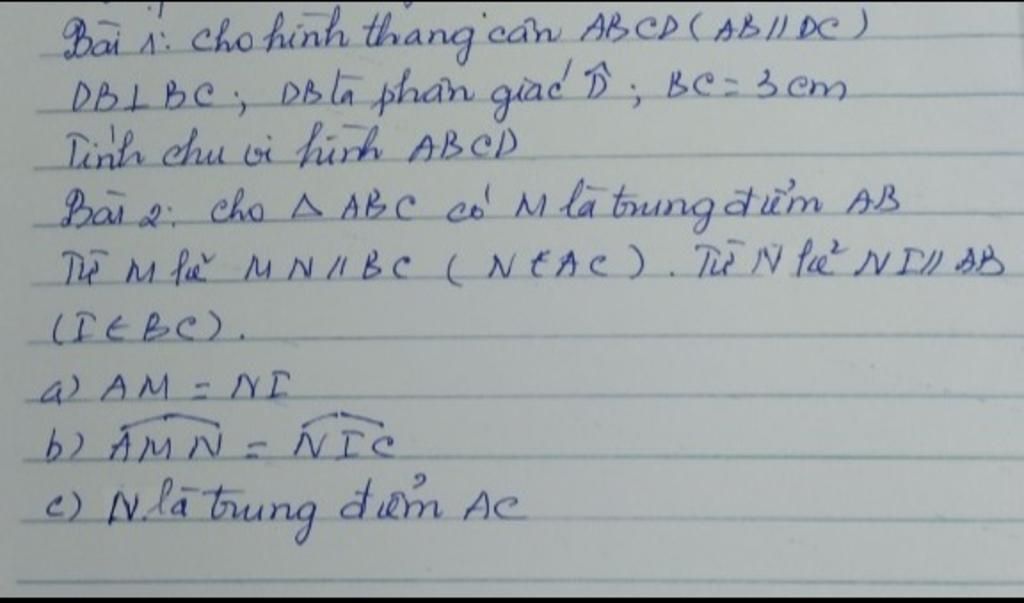 Bài 1: Cho hình thang cân ABCD (AB // DC)
DB⊥BC; DB là phân giác D̂; BC = 3cm
Tính chu vi hình ABCD
Bài 2: Cho △ ABC có M là trung điểm AB
Từ M kẻ MN // BC (N ∈ AC). Từ N kẻ NI // AB
(I ∈ BC).
a) AM = NI
b) AMN = NIC
c) N là trung điểm AC